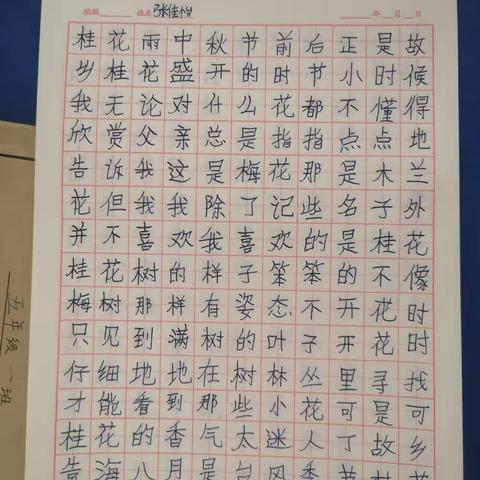 班级 姓名 张佳怡 年 月 日
桂花雨中秋节前后正是故
乡桂花盛开的时节小时候
我无论对什么花都不懂得
欣赏父亲总是指指点点地
告诉我这是梅花那是木兰
花但我我除了记些名子外
并不喜欢我喜欢的是桂花
桂花树的样子笨笨的不像
梅树那样有姿态不开花时
只见到满树的叶子开花时
仔细地地在树林丛里寻找
才能看到那些小花可是可
桂花的香气太迷人了故乡
告海八月是台风季
五年级一班